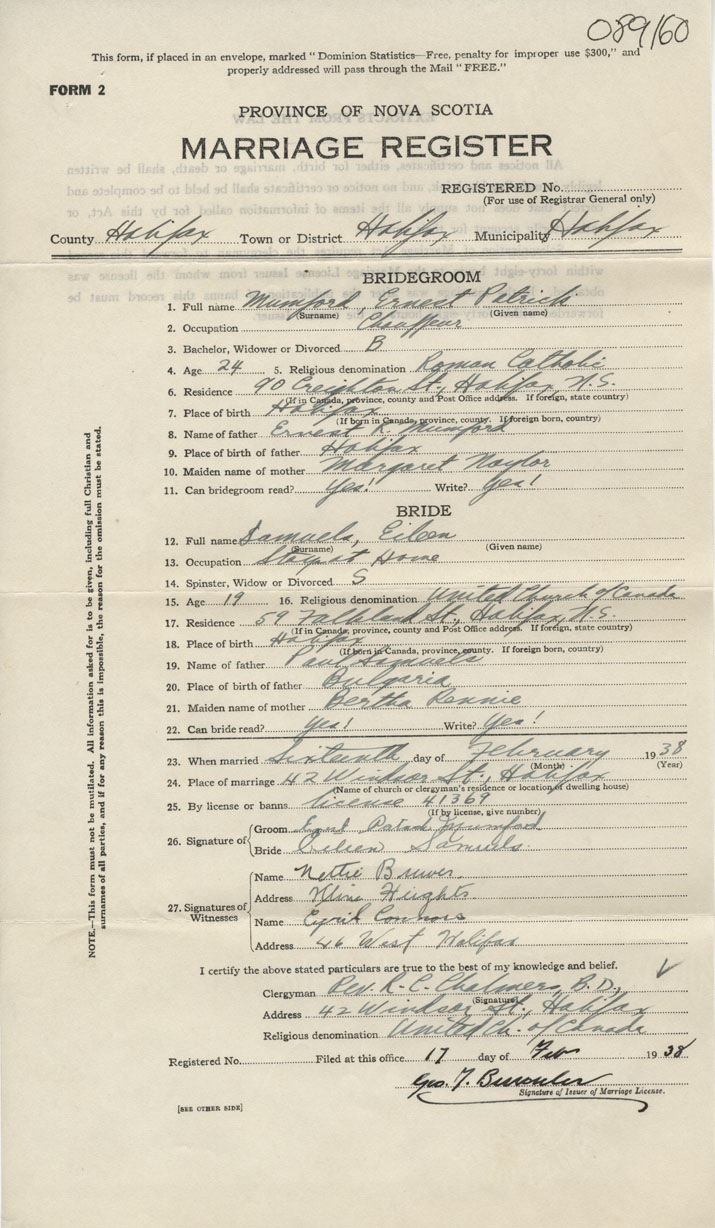 089/60
This form, if placed in an envelope, marked "Dominion Statistics—Free, penalty for improper use $300," and
properly addressed will pass through the Mail "FREE."
FORM 2
PROVINCE OF NOVA SCOTIA
MARRIAGE REGISTER
REGISTERED No.
(For use of Registrar General only)
County Halifax Town or District Halifax Municipality Halifax
BRIDEGROOM
1. Full name Mumford, Ernest Patrick
(Surname) (Given name)
2. Occupation Chauffeur
3. Bachelor, Widower or Divorced B
4. Age 24 5. Religious denomination Roman Catholic
6. Residence 90 Creighton St., Halifax, N.S.
(If in Canada, province, county and Post Office address. If foreign, state country)
7. Place of birth Halifax
(If born in Canada, province, county. If foreign born, country)
8. Name of father Ernest R. Mumford
9. Place of birth of father Halifax
10. Maiden name of mother Margaret Naylor
11. Can bridegroom read? Yes! Write? Yes!
BRIDE
12. Full name Samuels, Eileen
(Surname) (Given name)
13. Occupation Stay at Home
14. Spinster, Widow or Divorced S
15. Age 19 16. Religious denomination United Church of Canada
17. Residence 59 Falkland St., Halifax, N.S.
(If in Canada, province, county and Post Office address. If foreign, state country)
18. Place of birth Halifax
(If born in Canada, province, county. If foreign born, country)
19. Name of father Paul Samuels
20. Place of birth of father Bulgaria
21. Maiden name of mother Bertha Rennie
22. Can bride read? Yes! Write? Yes!
23. When married Sixteenth day of February 1938
(Month) (Year)
24. Place of marriage 42 Windsor St., Halifax
(Name of church or clergyman's residence or location of dwelling house)
25. By license or banns license 41369
(If by license, give number)
26. Signature of
Groom Patrick Mumford
Bride Eileen Samuels.
27. Signatures of Witnesses
Name Nettie
Address Kline Heights
Name Cyril Connors
Address 46 West Halifax
I certify the above stated particulars are true to the best of my knowledge and belief.
Clergyman Rev. R. C. Chalmers, B.D.,
(Signature)
Address 42 Windsor St., Halifax
Religious denomination United Ch. of Canada
Registered No. Filed at this office 17 day of Feb 1938
Geo. T.
Signature of Issuer of Marriage License.
[SEE OTHER SIDE]
NOTE.—This form must not be mutilated. All information asked for is to be given, including full Christian and
surnames of all parties, and if for any reason this is impossible, the reason for the omission must be stated.